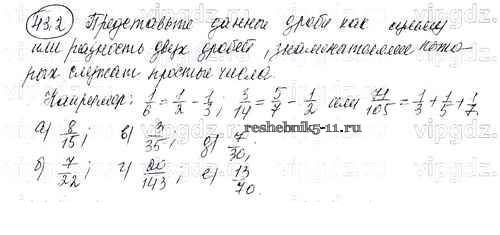 43.2 Представьте данные дроби как сумму
или разность двух дробей, знаменателями кото-
рых служат простые числа.
Например: 1/6 = 1/2 - 1/3; 3/14 = 5/7 - 1/2 или 71/105 = 1/3 + 1/5 + 1/7.
а) 8/15; в) 3/35; д) 7/30;
reshebnik5-11.ru
б) 7/22; г) 20/143; е) 13/70.